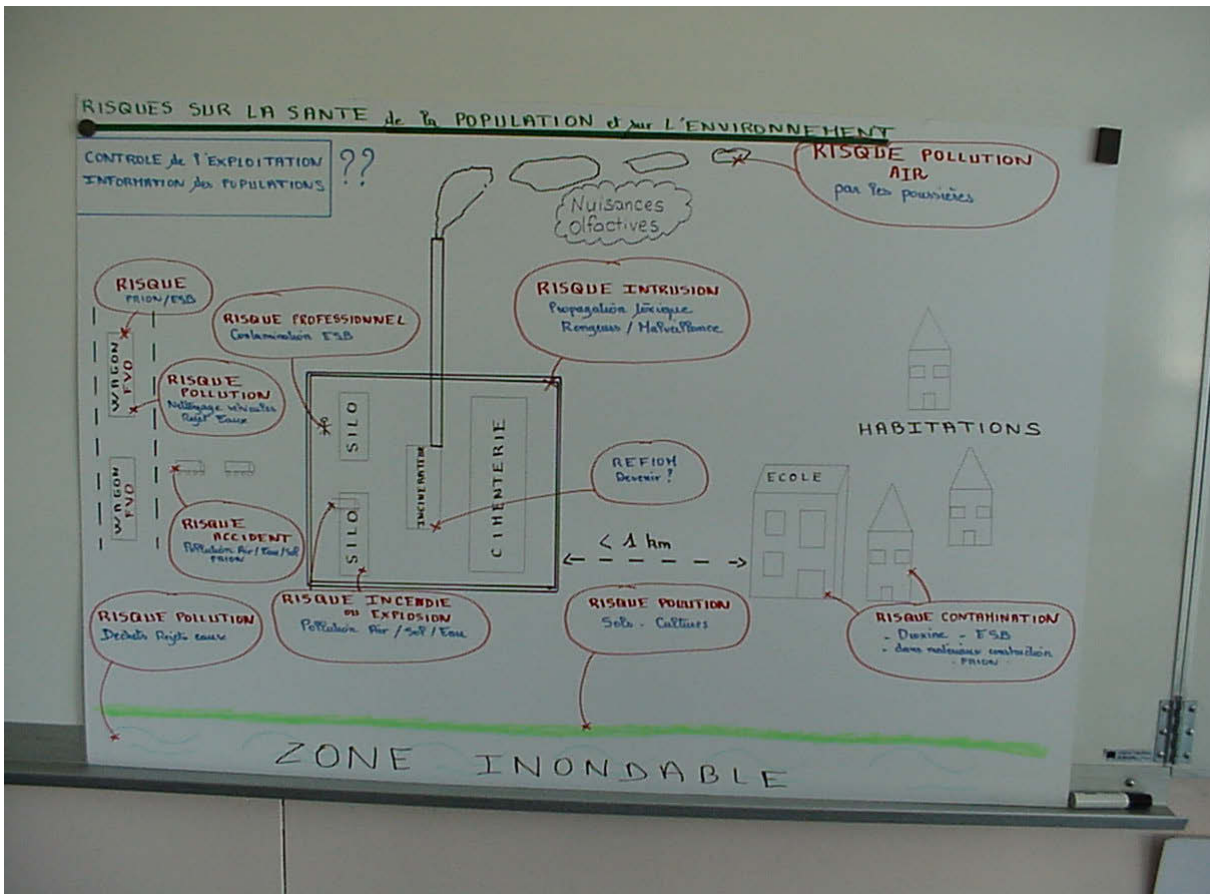 RISQUES SUR LA SANTE de la POPULATION et sur L'ENVIRONNEMENT
CONTROLE de l'EXPLOITATION
INFORMATION des POPULATIONS
??
RISQUE POLLUTION
AIR
par les poussières
Nuisances
Olfactives
RISQUE
PRION/ESB
RISQUE PROFESSIONNEL
Contamination ESB
RISQUE INTRUSION
Propagation toxique
Rongeurs / Malveillance
WAGON
FVO
RISQUE
POLLUTION
Nettoyage véhicules
Rejet Eaux
SILO
INCINERATEUR
CIMENTERIE
REFIOM
Devenir ?
HABITATIONS
ECOLE
WAGON
FVO
RISQUE
ACCIDENT
Pollution Air/Eau/Sol
PRION
SILO
< 1 km
RISQUE POLLUTION
Déchets Rejets eaux
RISQUE INCENDIE
ou EXPLOSION
Pollution Air / Sol / Eau
RISQUE POLLUTION
Sols - Cultures
RISQUE CONTAMINATION
- Dioxine - ESB
- dans matériaux construction
- PRION -
ZONE INONDABLE